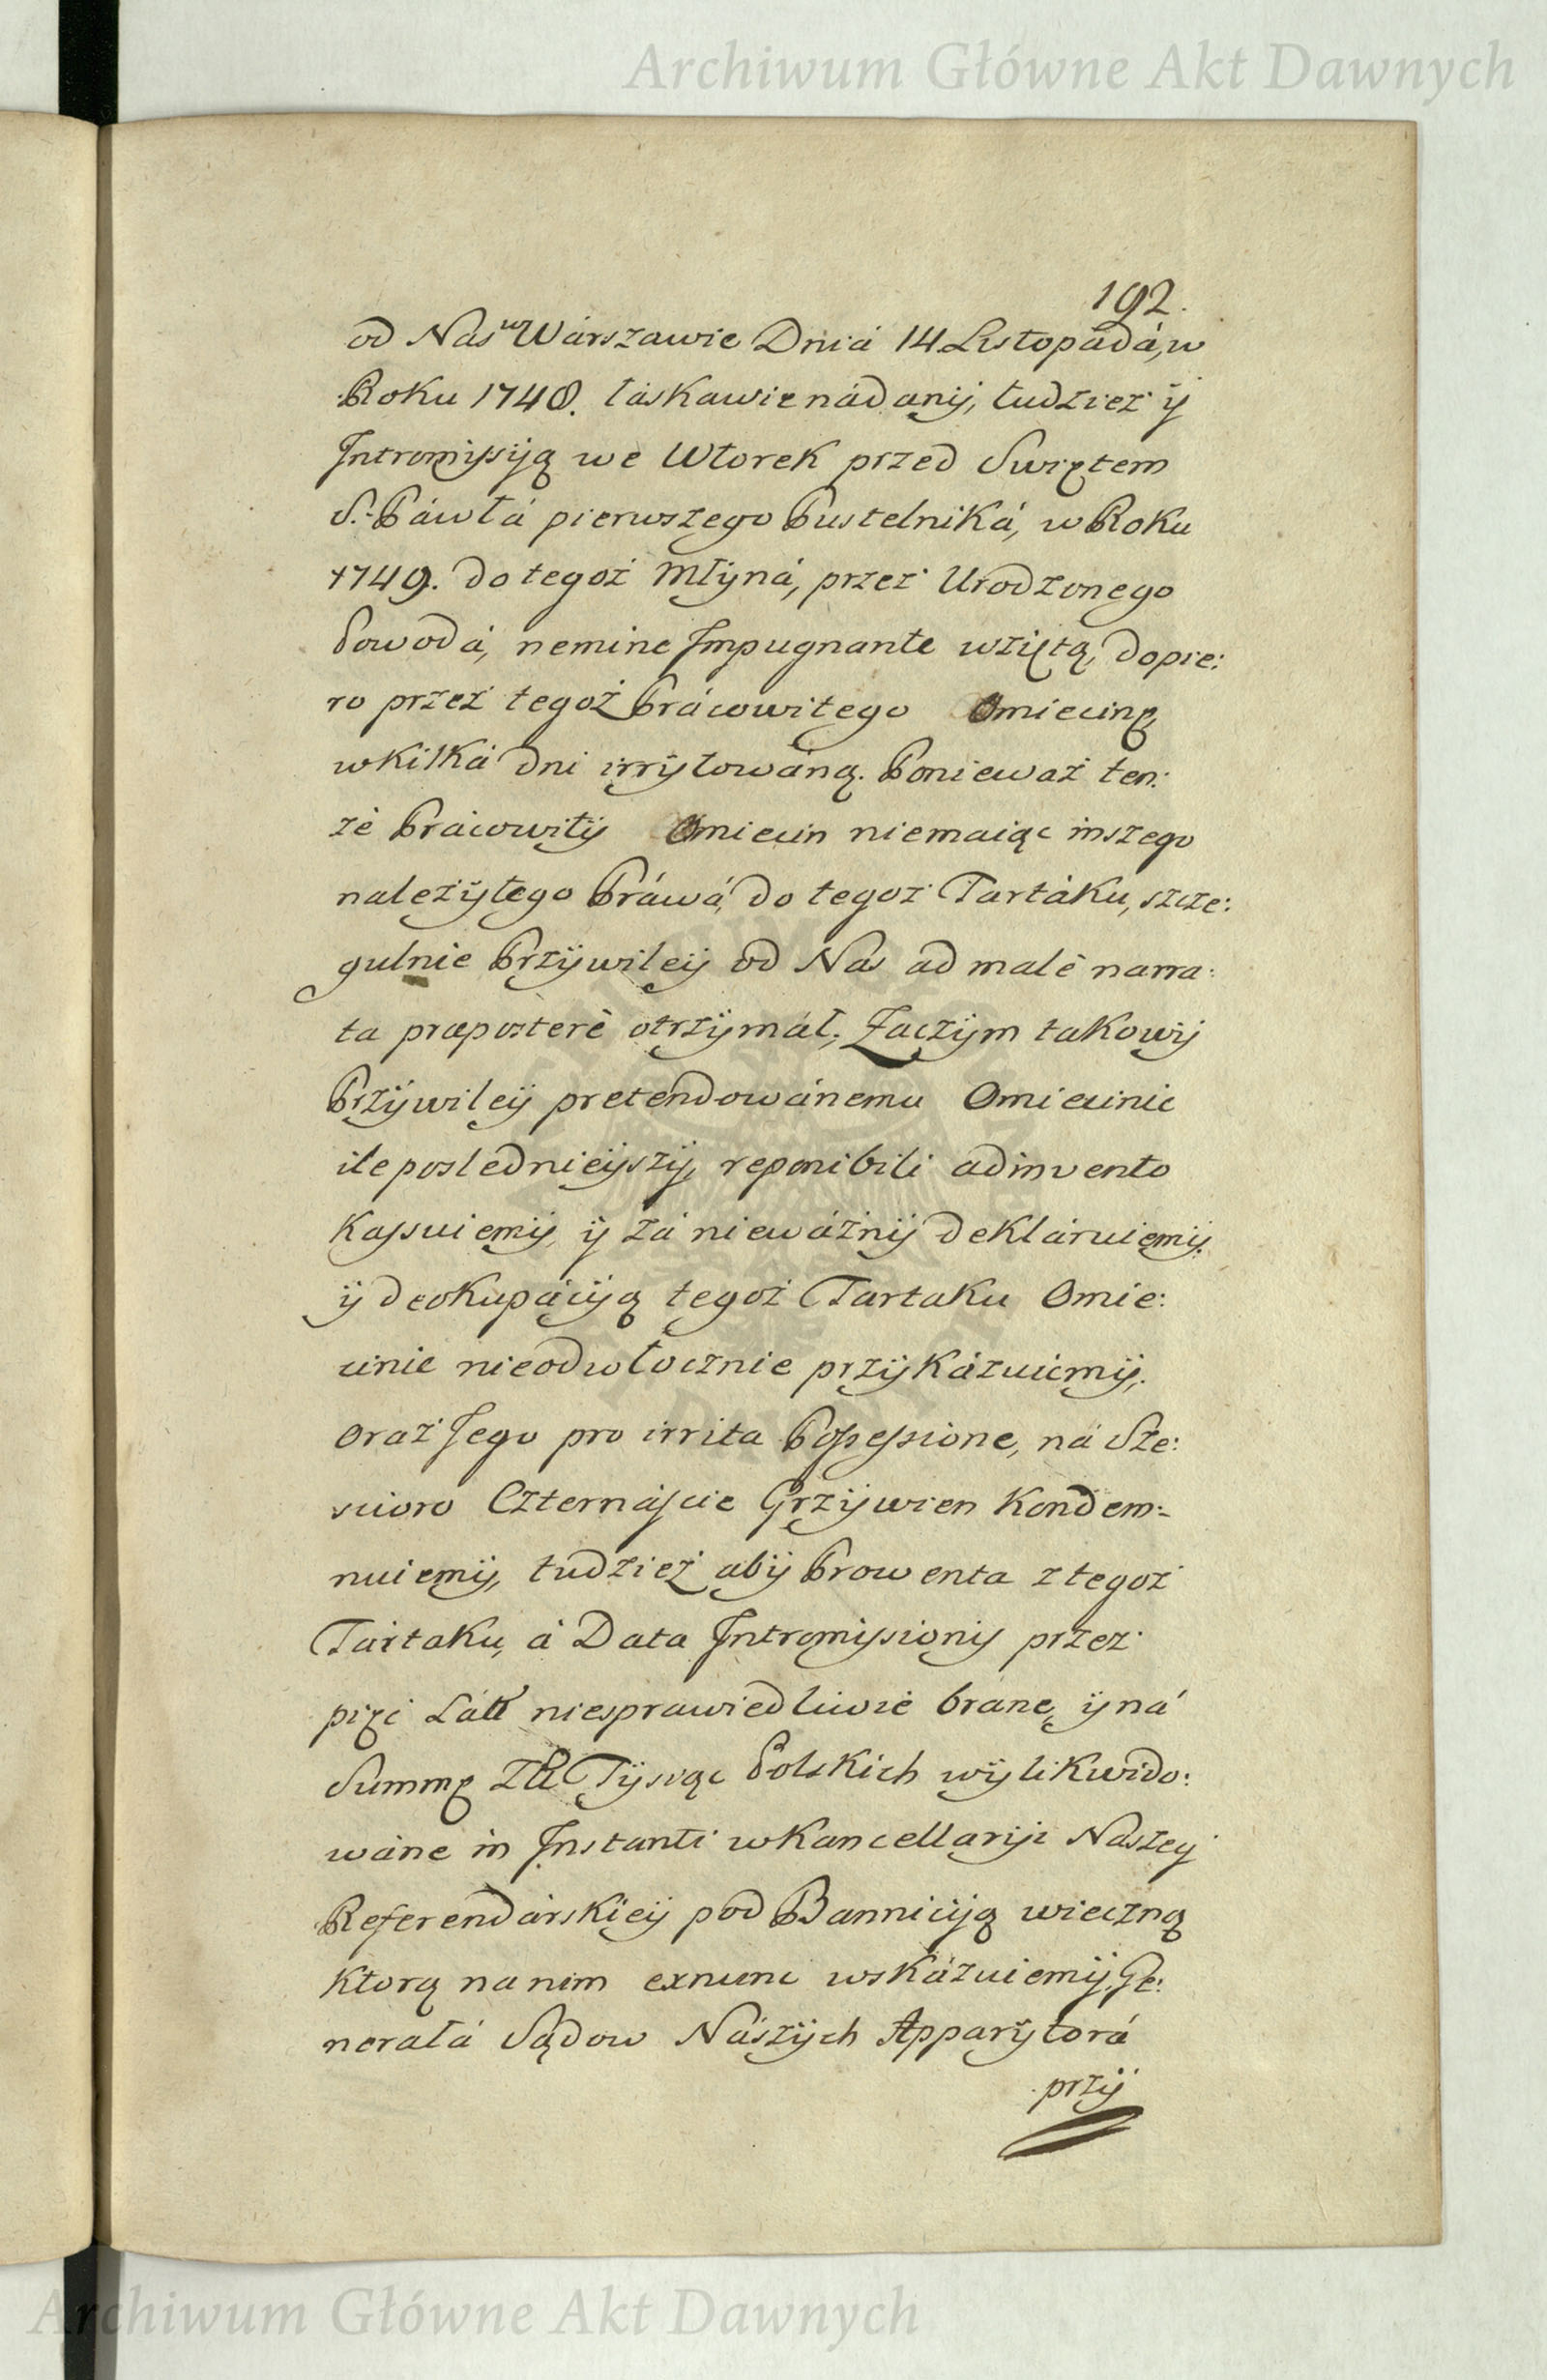 Archiwum Główne Akt Dawnych
192.
od Nas w Wárszawie Dniá 14 Listopádá, w
Roku 1748. łáskawie nádany, tudzież ÿ
Intromissyią we Wtorek przed Swiętem
S. Páwłá pierwszego Pustelniká, w Roku
1749. do tegoż Młÿná, przez Urodzonego
Powodá, nemine Impugnante wziętą, dopie:
ro przez tegoż Prácowitego Omiecinę,
w kilká dni irrÿtowáną. Ponieważ ten:
że Prácowitÿ Omiecin niemaiąc inszego
należÿtego Práwá, do tegoż Tartáku, szcze:
gulnie Przÿwileÿ od Nas ad malè narra:
ta præposterè otrzÿmáł; Zaczÿm takowÿ
Przÿwileÿ pretendowánemu Omiecinie
ile posledniejszÿ, reponibili adinvento
Kassuiemÿ, ÿ zá nieważnÿ deklaruiemÿ.
ÿ deokupácÿą tegoż Tartaku Omie:
cinie nieodwłocznie przÿkázuiemÿ.
Oraz Jego pro irrita Possessione, ná Sze:
scioro Czternáscie Grzÿwien Kondem:
nuiemÿ, tudzież abÿ Prowenta z tegoż
Tartaku, á Data Intromissionis przez
pięć Latt niesprawiedliwie brane, ÿ ná
Summę Zł Tÿsiąc Polskich wÿlikwido:
wáne in Instanti w Kancellarÿi Naszeÿ
Referendárskieÿ pod Bannicÿą wieczną
Ktorą na nim exnunc wskázuiemÿ, Ge:
nerałá Sądow Nászÿch Apparÿtorá
przÿ
Archiwum Główne Akt Dawnych